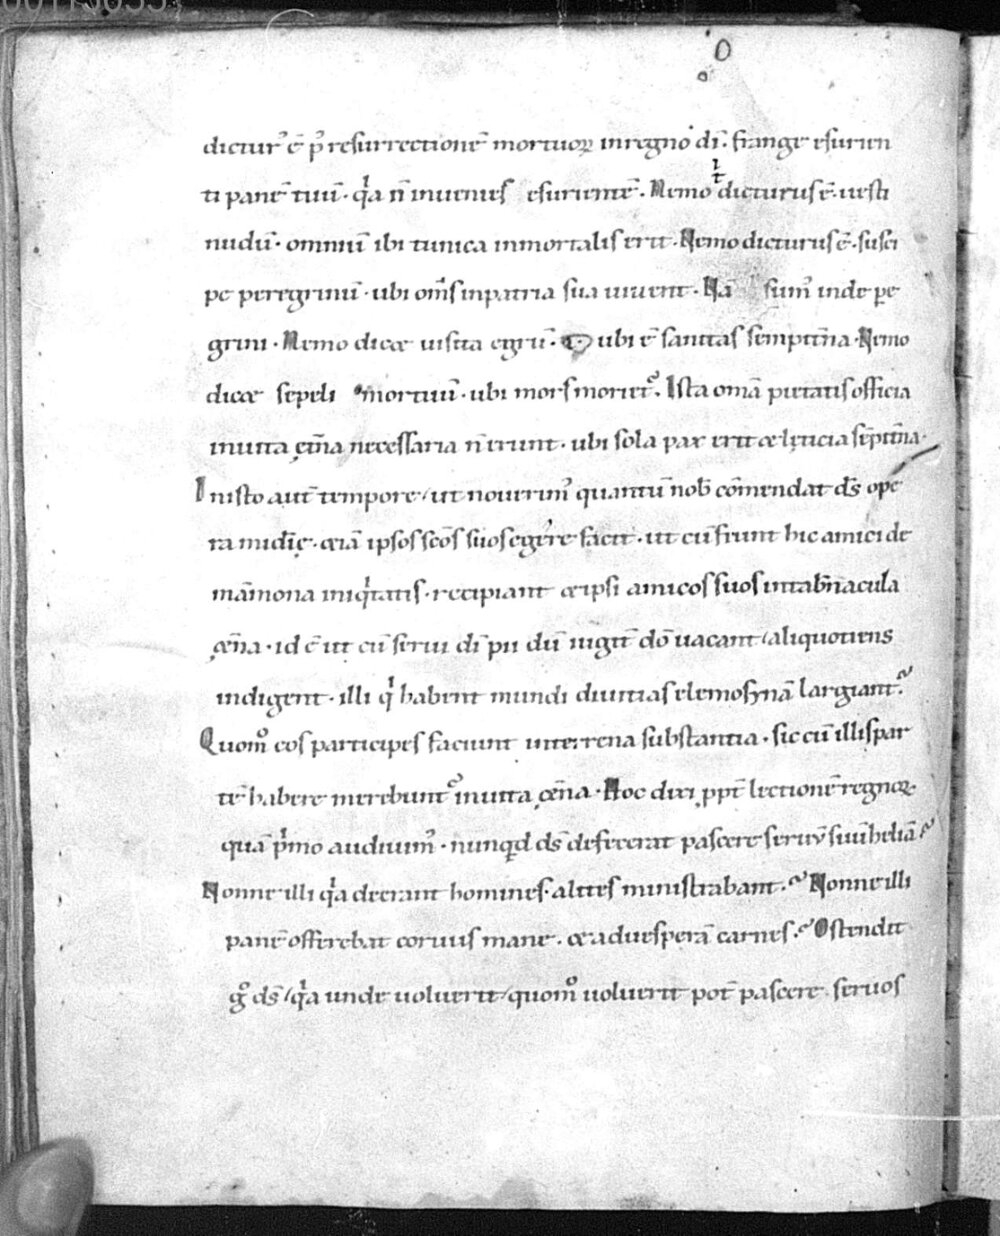 dictur᾿ ē p᾿ resurrectionē mortuoꝝ in regno dī. frange esurien
ti panē tuū. qͥa ñ inuenies esurientē. Nemo dicturus ē. uesti
nudū. omniū ibi tunica inmortalis erit. Nemo dicturus ē. susci
pe peregrinū. ubi om̄s in patria sua uiuent. Nā sum᾿ inde pe
grini. Nemo dicet uisita egrū. ubi ē sanitas sempit̄na. Nemo
dicet sepeli mortuū. ubi mors moriet᾿. Ista om̄a pietatis officia
in uita ęt̄na necessaria ñ erunt. ubi sola pax erit et lęticia sēpit̄na.
In isto aut̄ tempore, ut nouerim᾿ quantū nob̄ cōmendat d̄s ope
ra mīdię. etiā ipsos sc̄os suos egere facit. ut cū fiunt hic amici de
māmona iniqͥtatis. recipiant et ipsi amicos suos in tab̄nacula
ęt̄na. id ē ut cū serui dī pii dū iugit̄ dō uacant, aliquotiens
indigent. illi qͥ habent mundi diuitias elemosynā largiant᾿.
Quom̊ eos participes faciunt in terrena substantia. sic cū illis par
tē habere merebunt᾿ in uita ęt̄na. Hoc dixi ꝓpt̄ lectionē regnoꝝ.
quā pͥmo audiuim᾿. nunqͥd d̄s defecerat pascere seruū suū heliā?
Nonne illi qͥa deerant homines. alites ministrabant? Nonne illi
panē offerebat coruus mane. et ad uesperā carnes? Ostendit
g̊ d̄s, qͥa unde uoluerit, quom̊ uoluerit pot̄ pascere seruos